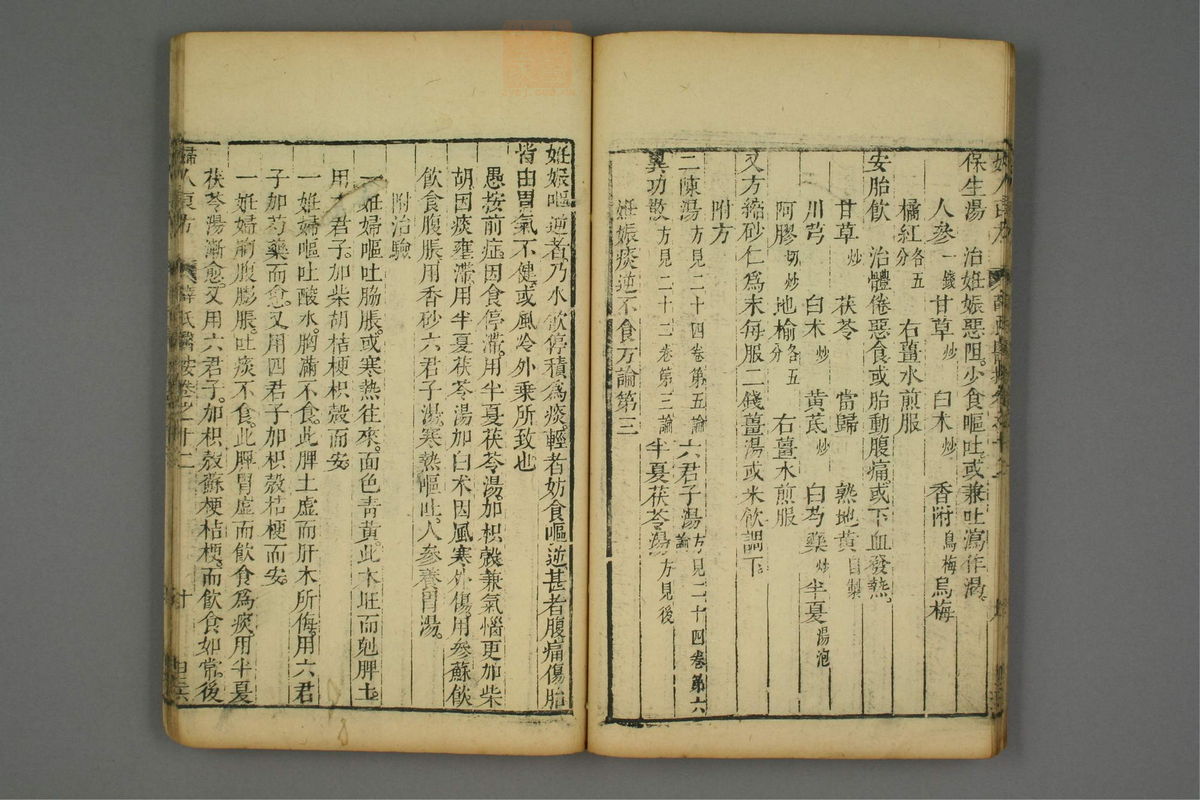 保生湯　治妊娠惡阻。少食嘔吐。或兼吐瀉作渴。
人參一錢甘草炒　白朮炒　香附烏梅烏梅
橘紅各五分　右薑水煎服
安胎飲　治體倦惡食或胎動腹痛或下血發熱。
甘草炒　茯苓　當歸　熟地黃自製
川芎　白朮炒　黃芪炒　白芍藥炒半夏湯泡
阿膠切炒地榆各五分　右薑水煎服
又方縮砂仁爲末每服二錢薑湯或米飲調下。
附方
二陳湯方見二十四卷第五論六君子湯方見二十四卷第六論
異功散方見二十二卷第三論半夏茯苓湯方見後
妊娠痰逆不食方論第三
妊娠嘔逆者乃水飲停積爲痰。輕者妨食嘔逆甚者腹痛傷胎
皆由胃氣不健。或風冷外乘所致也
愚按前症因食停滯。用半夏茯苓湯。加枳殼兼氣惱更加柴
胡因痰壅滯。用半夏茯苓湯加白朮因風寒外傷。用參蘇飲
飲食腹脹用香砂六君子湯。寒熱嘔吐。人參養胃湯。
附治驗
一妊婦嘔吐脇脹。或寒熱往來。面色靑黃。此木旺而剋脾土。
用六君子。加柴胡桔梗枳殼而安。
一妊婦嘔吐酸水。胸滿不食。此脾土虛而肝木所侮。用六君
子加芍藥而愈。又用四君子加枳殼桔梗而安。
一妊婦胸腹膨脹。吐痰不食。此脾胃虛而飲食爲痰。用半夏
茯苓湯漸愈。又用六君子。加枳殼蘇梗桔梗。而飲食如常。後
婦人良方　薛氏醫按卷之十二　十